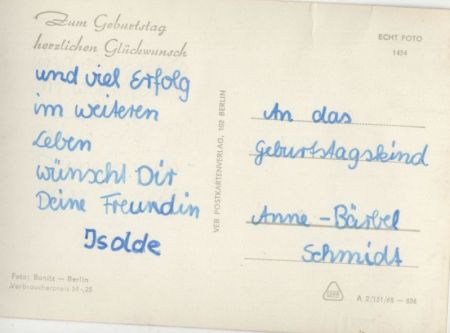 Zum Geburtstag
herzlichen Glückwunsch
und viel Erfolg
im weiteren
Leben
wünscht Dir
Deine Freundin
Isolde
Foto: Bonitz – Berlin
Verbraucherpreis M -,25
VEB POSTKARTENVERLAG, 102 BERLIN
ECHT FOTO
1454
An das
Geburtstagskind
Anne-Bärbel
Schmidt
A 2/151/68 — 606